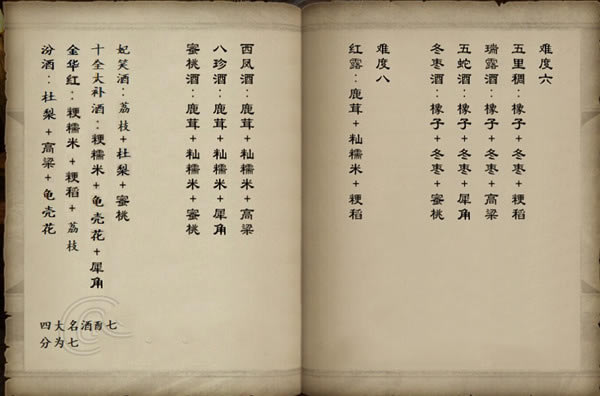 难度六
五里稠：橡子+冬枣+粳稻
瑞露酒：橡子+冬枣+高粱
五蛇酒：橡子+冬枣+犀角
冬枣酒：橡子+冬枣+蜜桃
难度八
红露：鹿茸+籼糯米+粳稻
西凤酒：鹿茸+籼糯米+高粱
八珍酒：鹿茸+籼糯米+犀角
蜜桃酒：鹿茸+籼糯米+蜜桃
妃笑酒：荔枝+杜梨+蜜桃
十全大补酒：粳糯米+龟壳花+犀角
金华红：粳糯米+粳稻+荔枝
汾酒：杜梨+高粱+龟壳花
四大名酒七
分为七